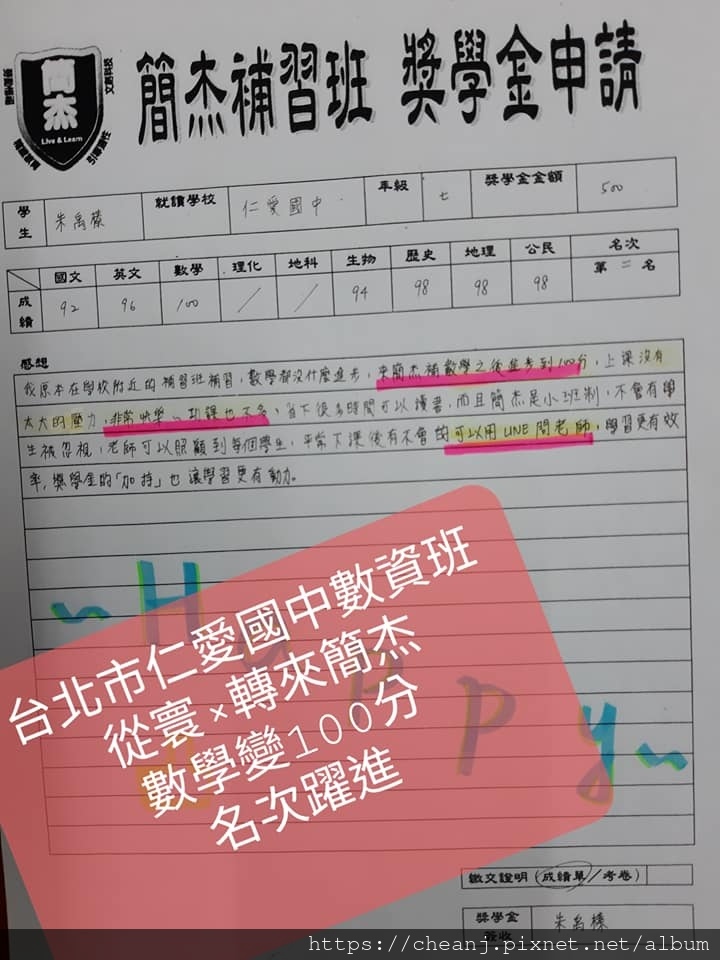 簡杰補習班 獎學金申請
簡杰
Live & Learn
學生 朱禹榛 就讀學校 仁愛國中 年級 七 獎學金金額 500
國文 英文 數學 理化 地科 生物 歷史 地理 公民 名次
成績 92 96 100 / / 94 98 98 98 第二名
感想
我原本在學校附近的補習班補習，數學都沒什麼進步，來簡杰補數學之後進步到100分，上課沒有
太大的壓力，非常快樂~功課也不多，省下很多時間可以讀書，而且簡杰是小班制，不會有學
生被忽視，老師可以照顧到每個學生，平常下課後有不會的可以用LINE問老師，學習更有效
率，獎學金的「加持」也讓學習更有動力。
~Happy~
台北市仁愛國中數資班
從寰×轉來簡杰
數學變100分
名次躍進
繳交證明(成績單/考卷)
獎學金簽收 朱禹榛
https://cheanj.pixnet.net/album